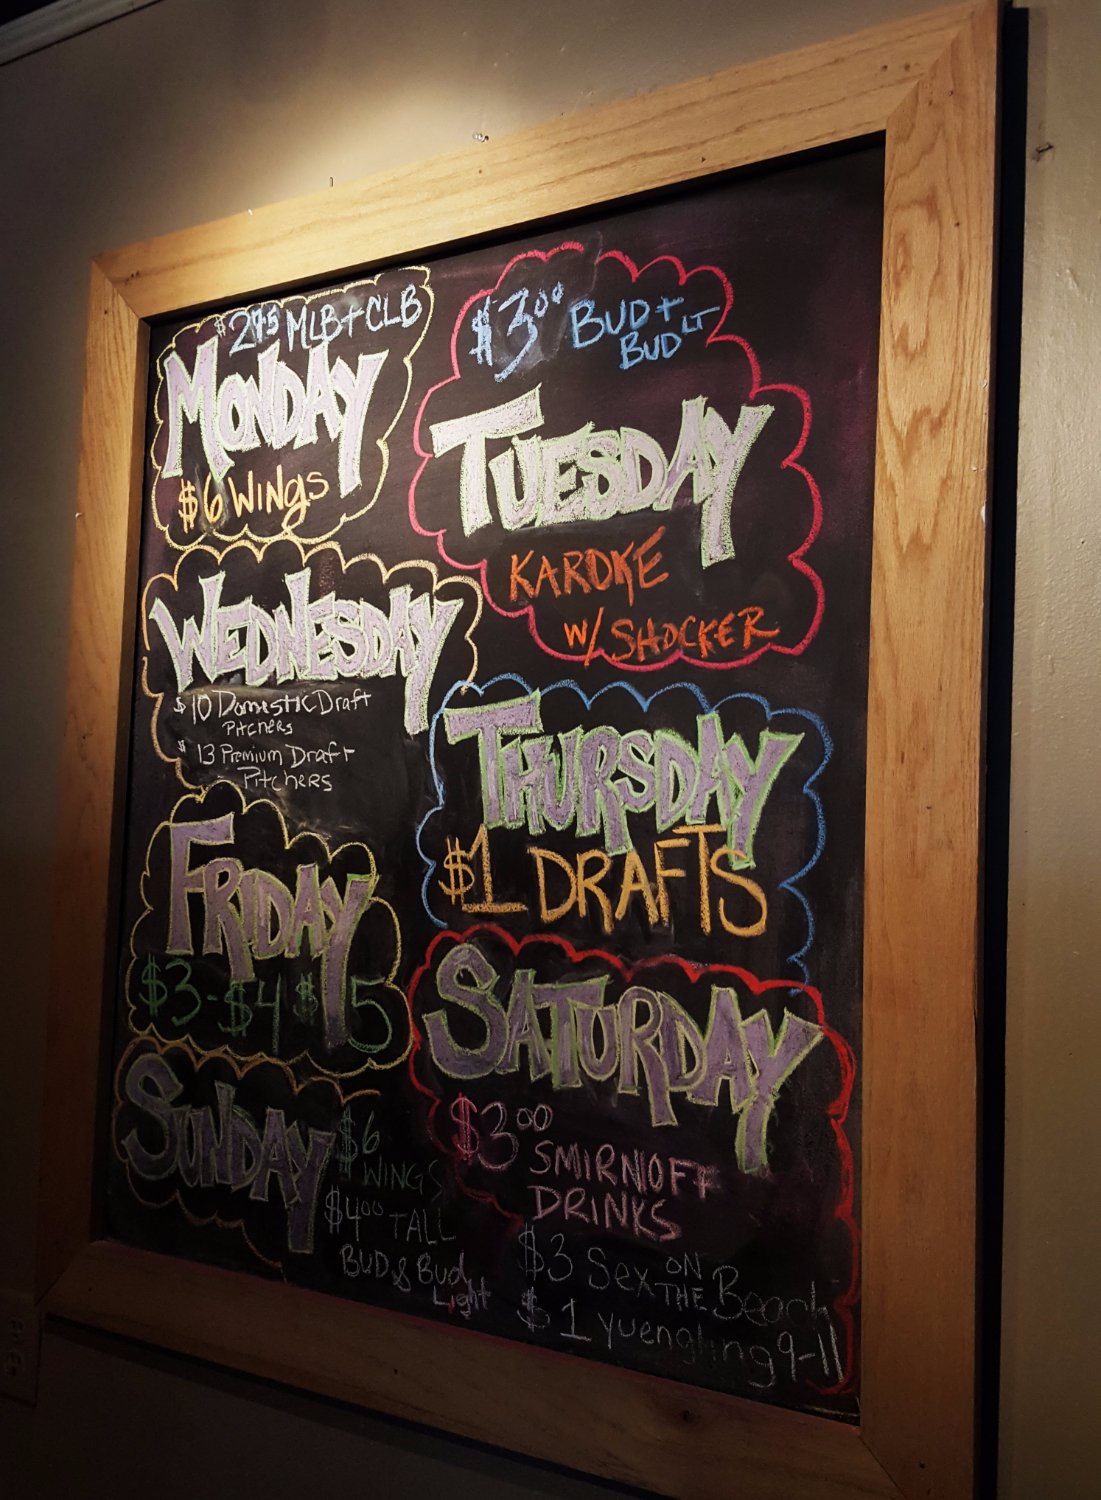 $2.75 MLB + CLB
MONDAY
$6 WINGS
$3.00 BUD + BUD LT
TUESDAY
KAROKE
W/ SHOCKER
WEDNESDAY
$10 Domestic Draft
Pitchers
$13 Premium Draft
Pitchers
THURSDAY
$1 DRAFTS
FRIDAY
$3-$4 $5
SATURDAY
$3.00
SMIRNOFF
DRINKS
$3 Sex ON THE Beach
$1 Yuengling 9-11
SUNDAY
$6
WINGS
$4.00 TALL
BUD & Bud
Light